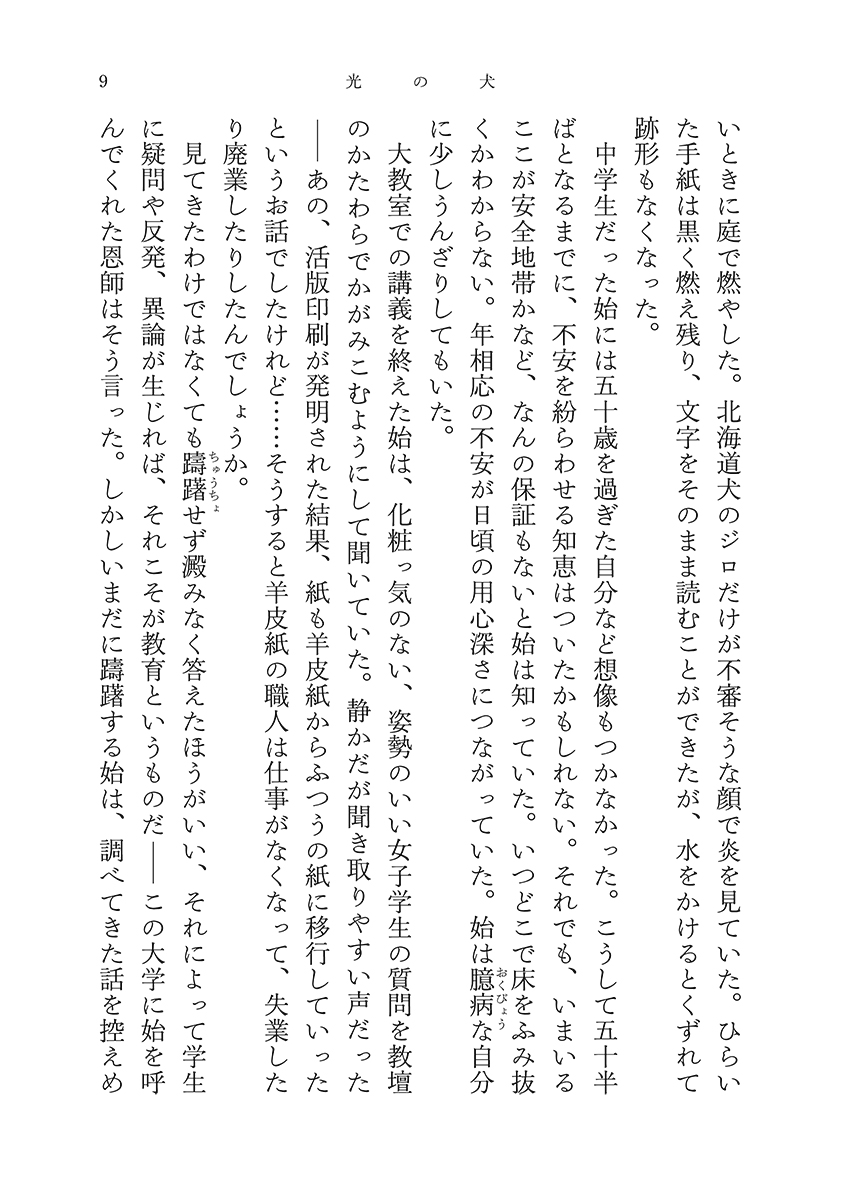 9
光の犬
いときに庭で燃やした。北海道犬のジロだけが不審そうな顔で炎を見ていた。ひらい
た手紙は黒く燃え残り、文字をそのまま読むことができたが、水をかけるとくずれて
跡形もなくなった。
中学生だった始には五十歳を過ぎた自分など想像もつかなかった。こうして五十半
ばとなるまでに、不安を紛らわせる知恵はついたかもしれない。それでも、いまいる
ここが安全地帯かなど、なんの保証もないと始は知っていた。いつどこで床をふみ抜
くかわからない。年相応の不安が日頃の用心深さにつながっていた。始は臆病な自分
おくびょう
に少しうんざりしてもいた。
大教室での講義を終えた始は、化粧っ気のない、姿勢のいい女子学生の質問を教壇
のかたわらでかがみこむようにして聞いていた。静かだが聞き取りやすい声だった
――あの、活版印刷が発明された結果、紙も羊皮紙からふつうの紙に移行していった
というお話でしたけれど……そうすると羊皮紙の職人は仕事がなくなって、失業した
り廃業したりしたんでしょうか。
見てきたわけではなくても躊躇せず澱みなく答えたほうがいい、それによって学生
ちゅうちょ
に疑問や反発、異論が生じれば、それこそが教育というものだ――この大学に始を呼
んでくれた恩師はそう言った。しかしいまだに躊躇する始は、調べてきた話を控えめ